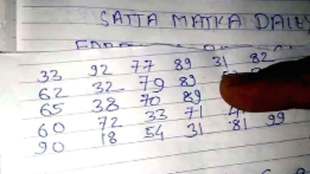 SATTA MATKA DAILY
33 92 77 89 31 82
62 32 79 89
65 38 70 89
60 72 33 71
90 18 54 31 81 99